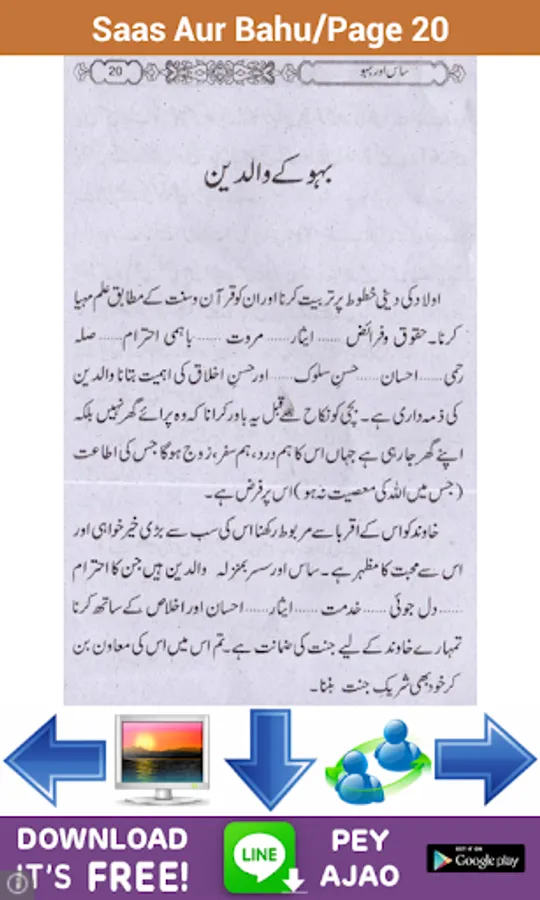 Saas Aur Bahu/Page 20
20
ساس اور بہو
بہو کے والدین
اولاد کی دینی خطوط پر تربیت کرنا اور ان کو قرآن وسنت کے مطابق علم مہیا
کرنا۔ حقوق وفرائض ...... ایثار...... مروت ...... باہمی احترام...... صلہ
رحمی...... احسان...... حسنِ سلوک...... اور حسنِ اخلاق کی اہمیت بتانا والدین
کی ذمہ داری ہے۔ بچی کو نکاح سے قبل یہ باور کرانا کہ وہ پرائے گھر نہیں بلکہ
اپنے گھر جا رہی ہے جہاں اس کا ہم درد، ہم سفر، زوج ہوگا جس کی اطاعت
(جس میں اللہ کی معصیت نہ ہو) اس پر فرض ہے۔
خاوند کو اس کے اقربا سے مربوط رکھنا اس کی سب سے بڑی خیر خواہی اور
اس سے محبت کا مظہر ہے۔ ساس اور سسر بمنزلہ والدین ہیں جن کا احترام
...... دل جوئی...... خدمت...... ایثار...... احسان اور اخلاص کے ساتھ کرنا
تمہارے خاوند کے لیے جنت کی ضمانت ہے۔ تم اس میں اس کی معاون بن
کر خود بھی شریکِ جنت بننا۔
DOWNLOAD
IT'S FREE!
LINE
PEY
AJAO
GET IT ON
Google play